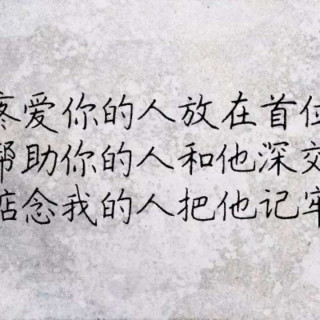 疼爱你的人放在首位
帮助你的人和他深交
惦念我的人把他记牢